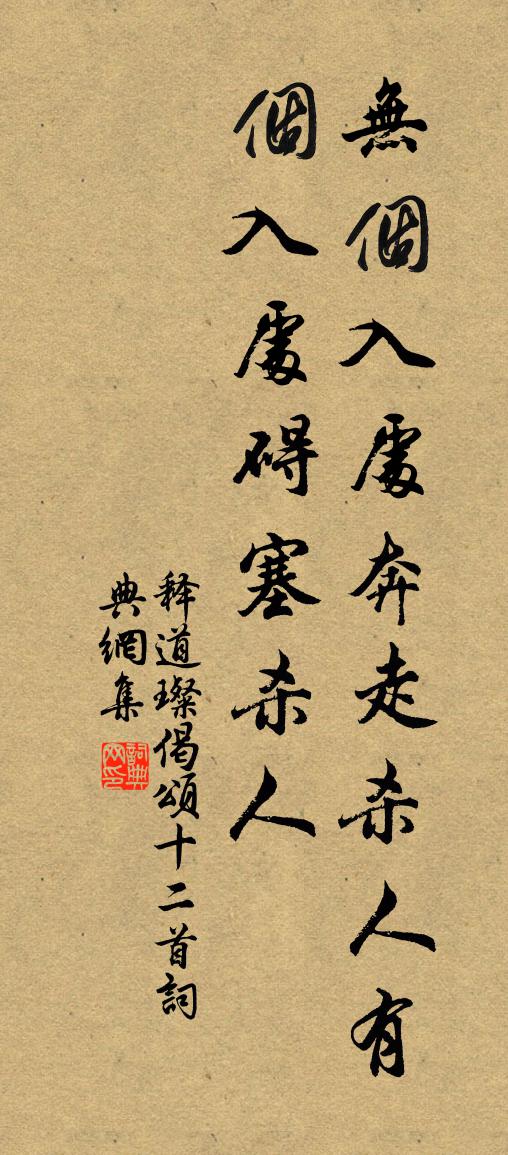 無個入處奔走杀人有
個入處碍塞杀人
释道璨偈頌十二首詞
典網集
詞典网印